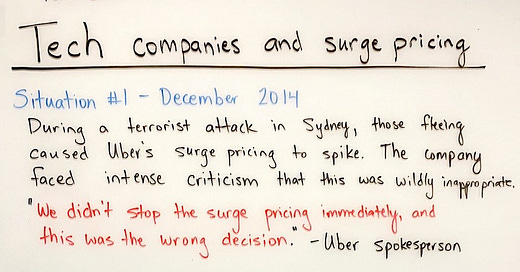 Tech companies and surge pricing
Situation #1 - December 2014
During a terrorist attack in Sydney, those fleeing
caused Uber's surge pricing to spike. The company
faced intense criticism that this was wildly inappropriate.
"We didn't stop the surge pricing immediately, and
this was the wrong decision." - Uber spokesperson